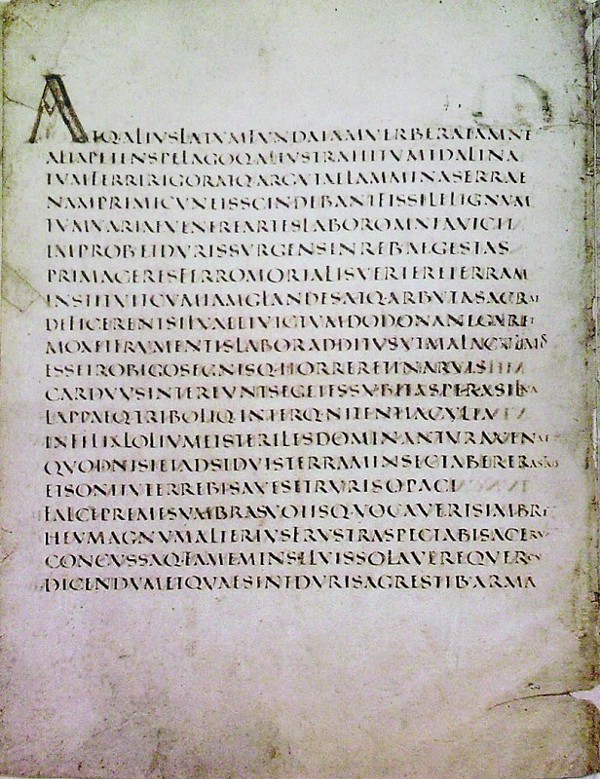 ATQ·ALIUSLATUMFUNDAIAMVERBERATAMNE
ALTAPETENSPELAGOQ·ALIUSTRAHITUMIDALINA
TUMFERRIRIGORATQ·ARGUTAELAMMINASERRAE
NAMPRIMICUNEISSCINDEBANTFISSILELIGNUM
TUMVARIAEVENEREARTESLABOROMNIAVICIT
IMPROBETDURISSURGENSINREBAEGESTAS
PRIMACERESFERROMORTALISVERTERETERRAM
INSTITUITCUMIAMGLANDESATQ·ARBUTASACRAE
DEFICERENTSILVAEETVICTUMDODONANEGARET
MOXETFRUMENTISLABORADDITUSUTMALACULMOS
ESSETROBIGOSEGNISQ·HORRERETINARVIS
CARDUUSINTEREUNTSEGETESSUBITASPERASILVA
LAPPAEQ·TRIBOLIQ·INTERQ·NITENTIACULTA
INFELIXLOLIUMETSTERILESDOMINANTURAVENAE
QUODNISIETADSIDUISTERRAMINSECTABERERASTRIS
ETSONITUTERREBISAVESETRURISOPACI
FALCEPREMESUMBRASVOTISQ·VOCAVERISIMBRE
HEUMAGNUMALTERIUSFRUSTRASPECTABISACERVU
CONCUSSAQ·FAMEMINSILVISSOLAVEREQUERCU
DICENDUMETQUAESINTDURISAGRESTIB·ARMA